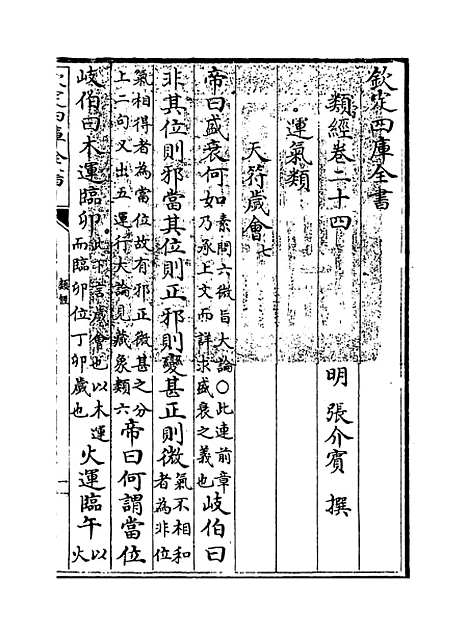 欽定四庫全書
類經卷二十四
明 張介賓 撰
運氣類
天符歲會七
帝曰盛衰何如素問六微旨大論○此連前章乃承上文而詳求盛衰之義也岐伯曰
非其位則邪當其位則正邪則變甚正則微氣不相和者為非位
氣相得者為當位故有邪正微甚之分上二句又出五運行大論見藏象類六帝曰何謂當位
岐伯曰木運臨卯此下言歲會也以木運而臨卯位丁卯歲也火運臨午以火
類經